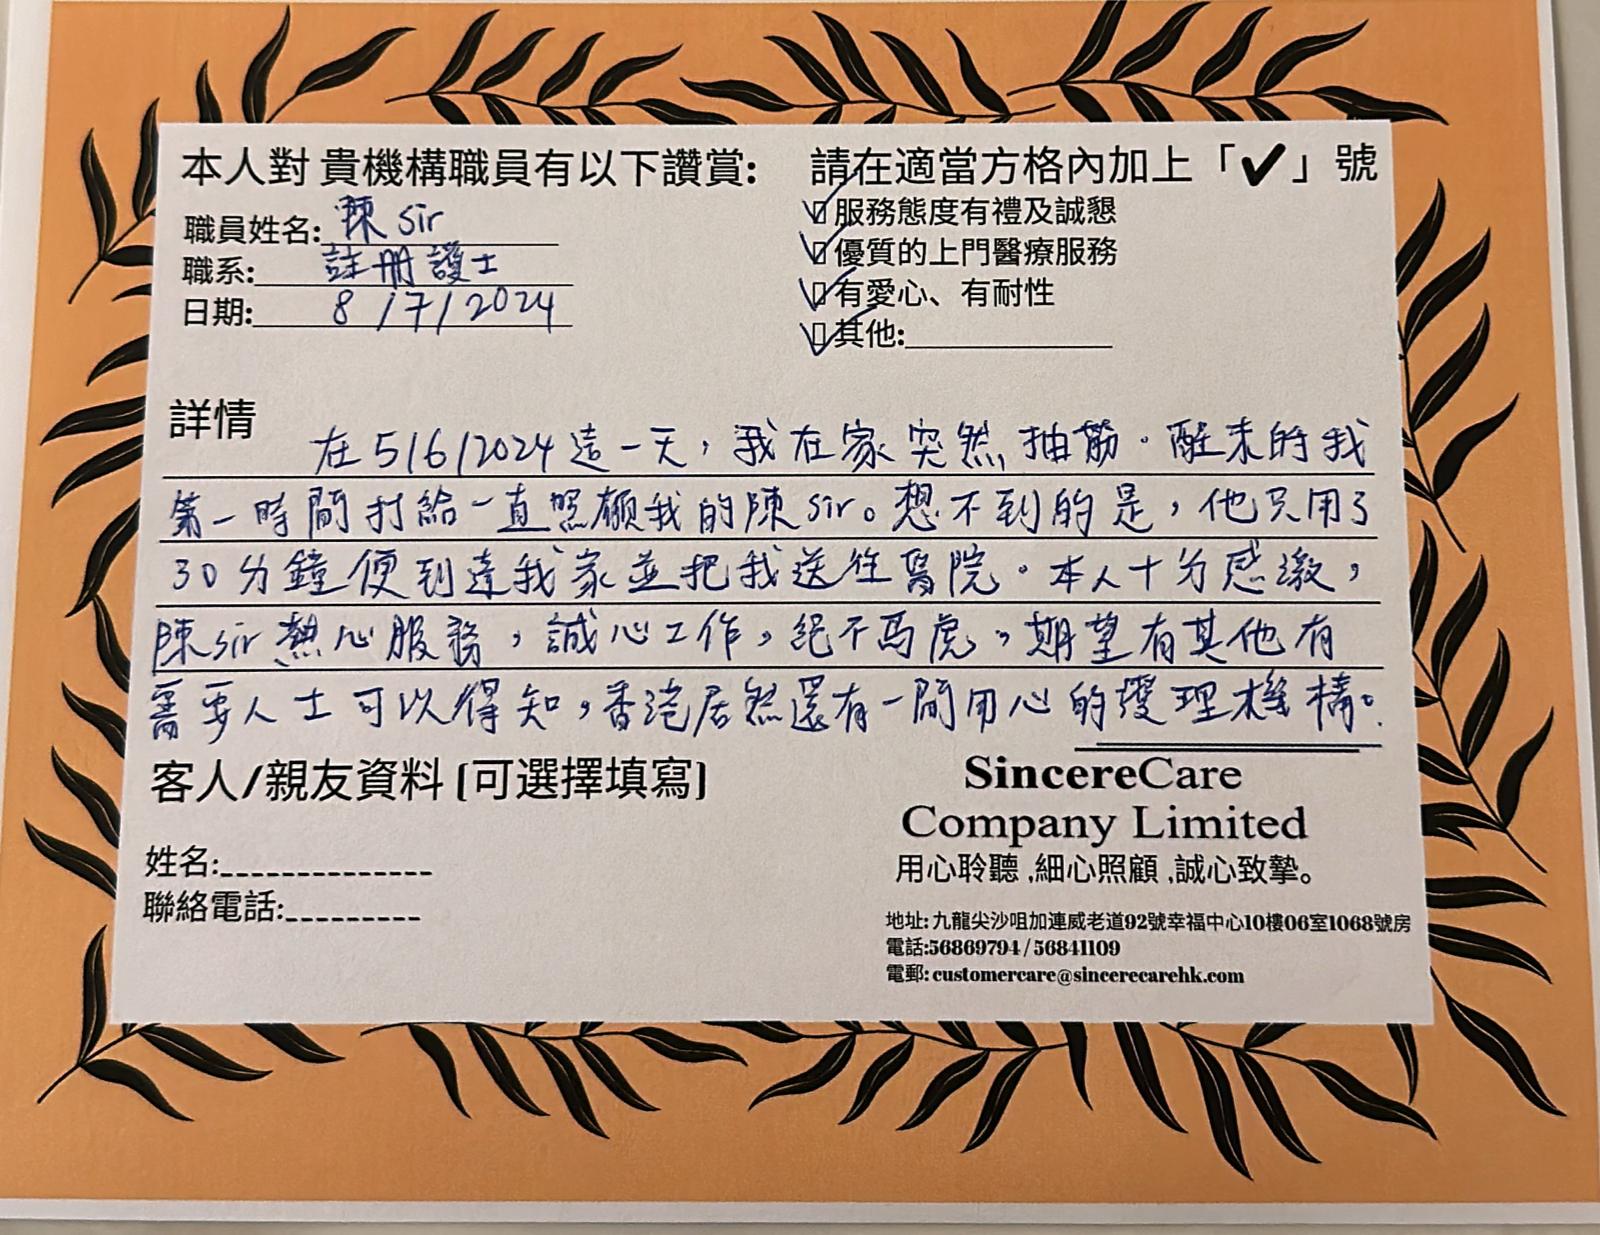 本人對 貴機構職員有以下讚賞:
職員姓名: 陳 Sir
職系: 註冊護士
日期: 8/7/2024
請在適當方格內加上「✔」號
服務態度有禮及誠懇
優質的上門醫療服務
有愛心、有耐性
其他:
詳情
在5/6/2024這一天，我在家突然抽筋。醒來的我
第一時間打給一直照顧我的陳sir。想不到的是，他只用了
30分鐘便到達我家並把我送往醫院。本人十分感激，
陳sir熱心服務，誠心工作，絕不馬虎，期望有其他有
需要人士可以得知，香港居然還有一間用心的護理機構。
客人/親友資料 (可選擇填寫)
姓名:
聯絡電話:
SincereCare
Company Limited
用心聆聽 ,細心照顧 ,誠心致摯。
地址: 九龍尖沙咀加連威老道92號幸福中心10樓06室1068號房
電話:56869794 / 56841109
電郵: customercare@sincerecarehk.com